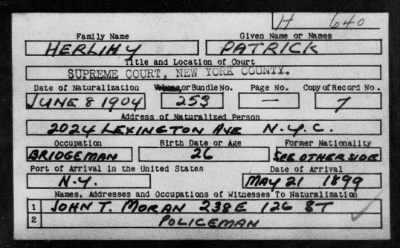 H 640
Family Name Given Name or Names
HERLIHY PATRICK
Title and Location of Court
SUPREME COURT, NEW YORK COUNTY.
Date of Naturalization Volume or Bundle No. Page No. Copy of Record No.
JUNE 8 1904 253 — 7
Address of Naturalized Person
2024 LEXINGTON AVE N.Y.C.
Occupation Birth Date or Age Former Nationality
BRIDGEMAN 26 SEE OTHER SIDE
Port of Arrival in the United States Date of Arrival
N.Y. MAY 21 1899
Names, Addresses and Occupations of Witnesses To Naturalization
1 JOHN T. MORAN 238 E 126 ST
2 POLICEMAN